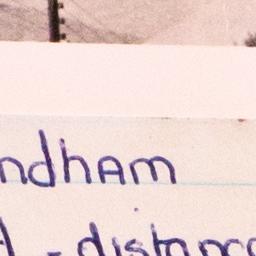 ndham
- distance